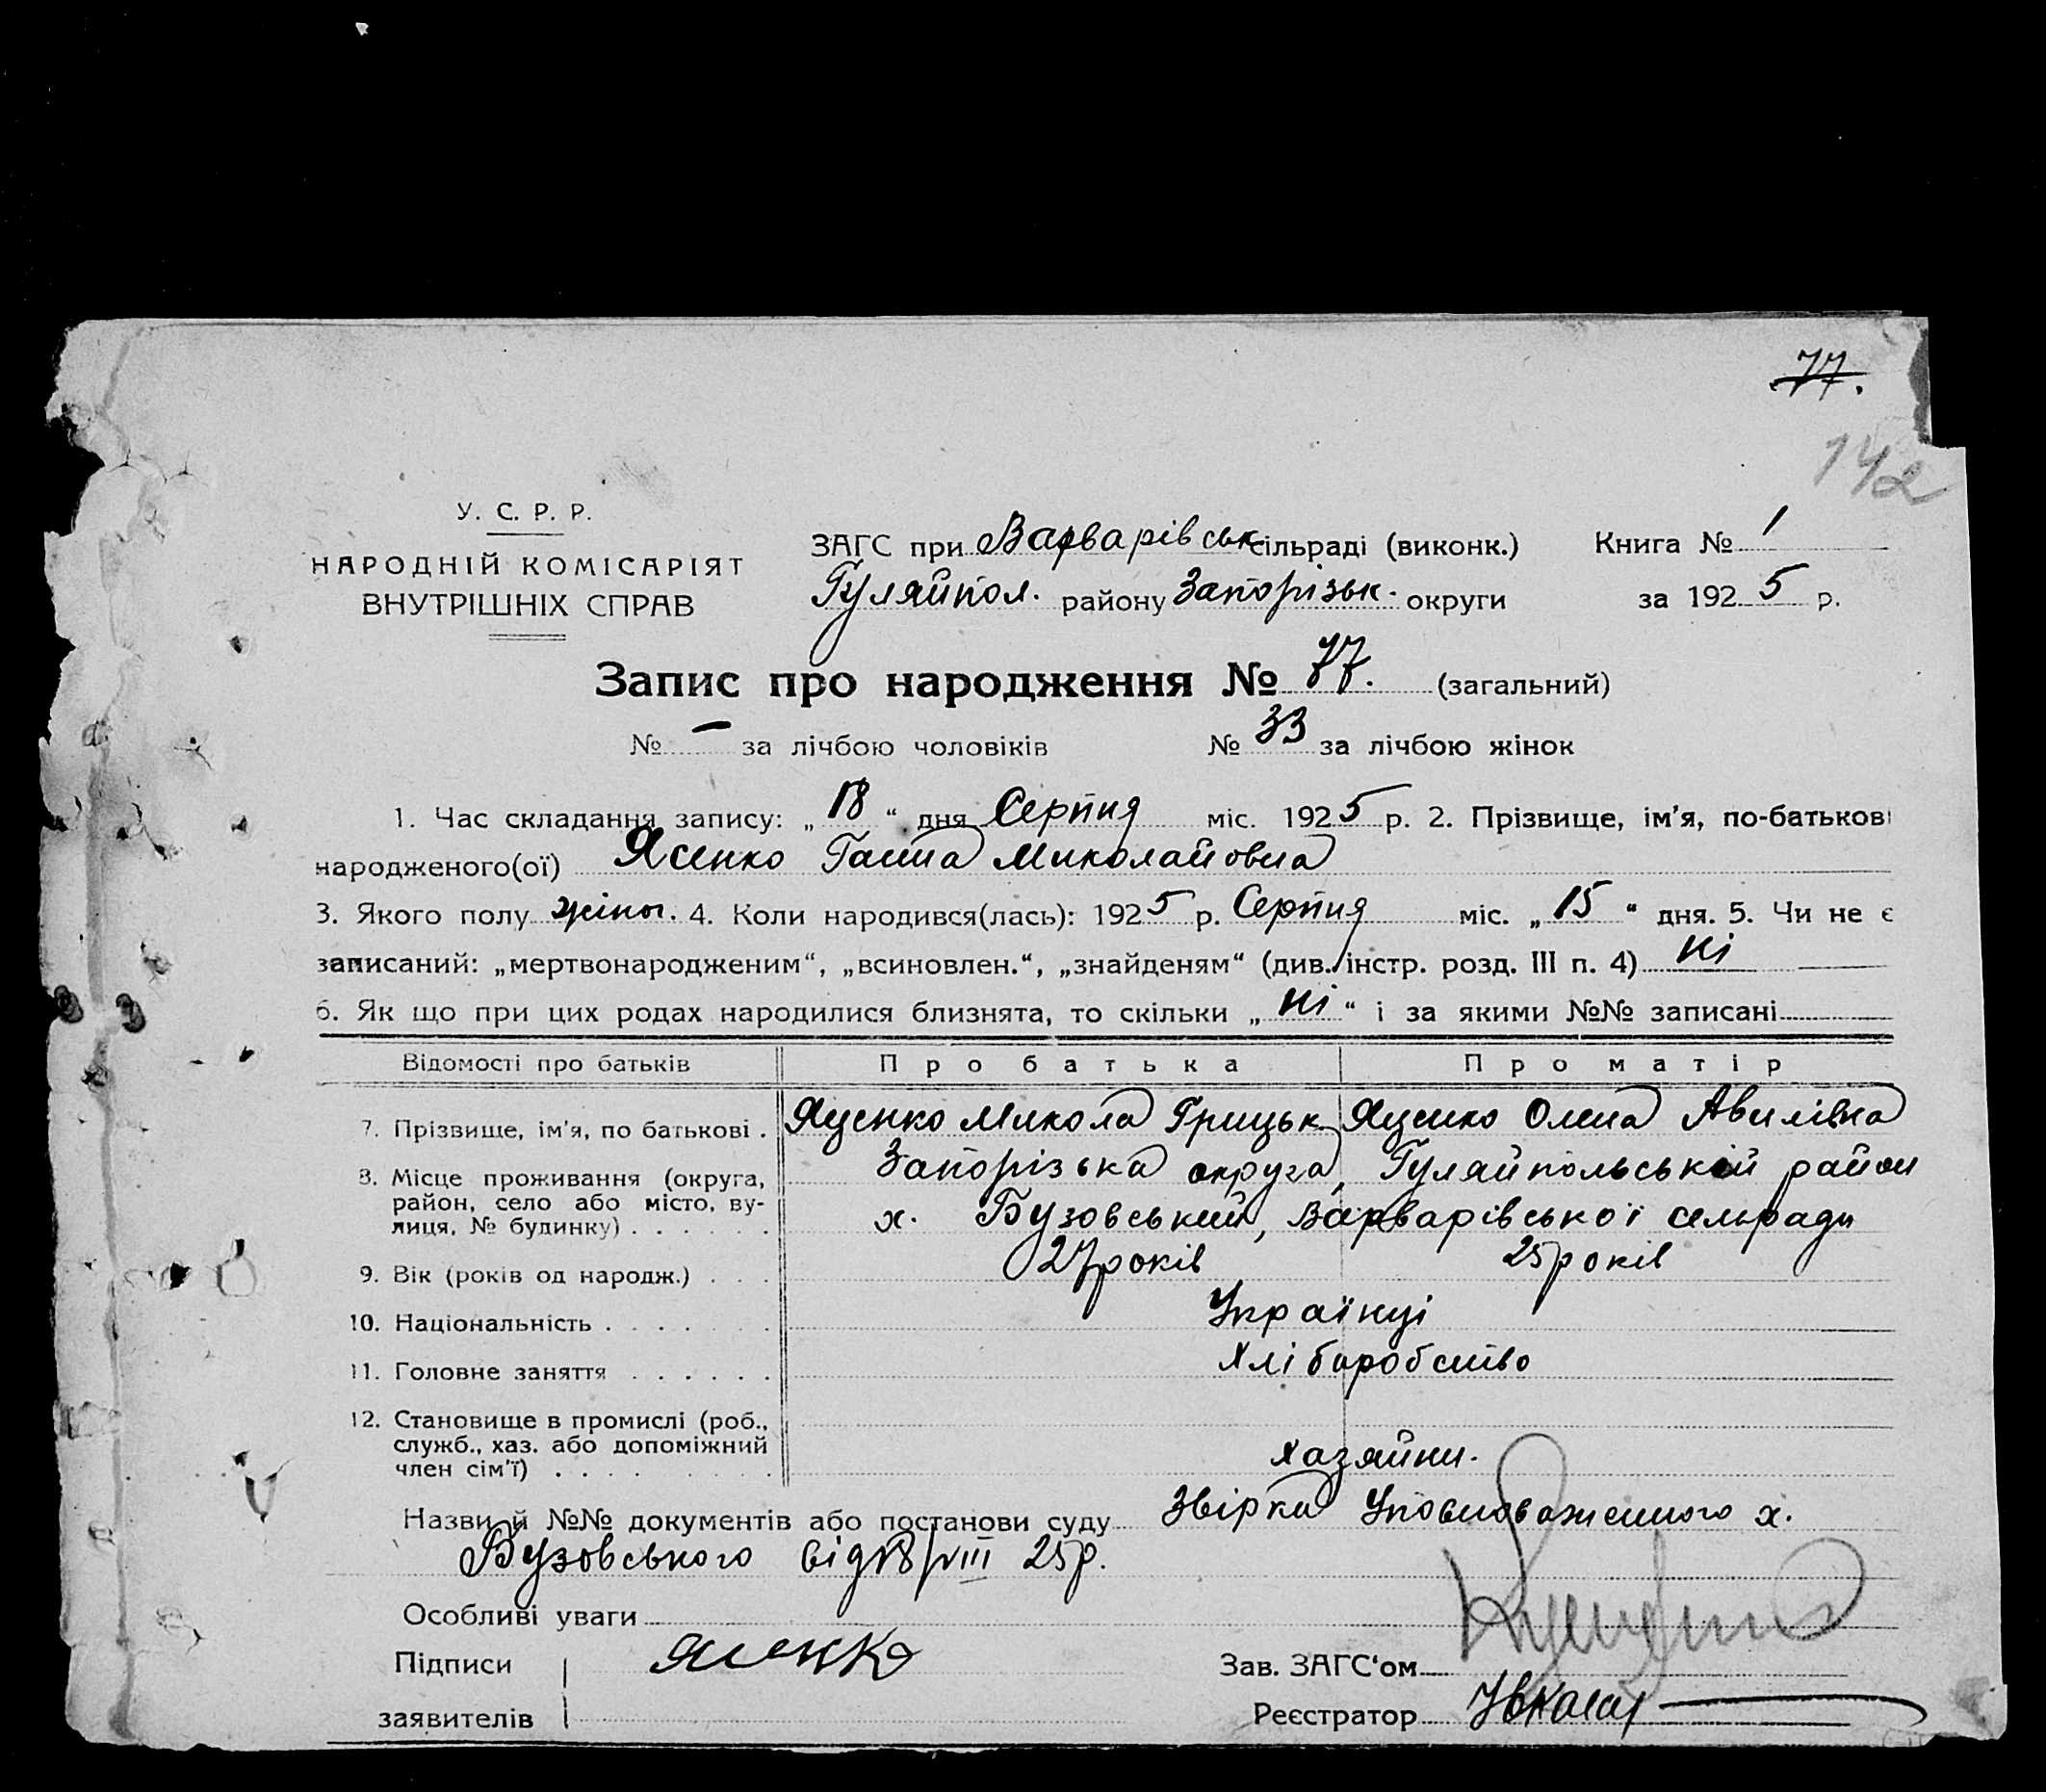 77.
142
У. С. Р. Р.
НАРОДНІЙ КОМІСАРІЯТ
ВНУТРІШНІХ СПРАВ
ЗАГС при Варварівськ сільраді (виконк.)
Гуляйпол. району Запорізьк. округи
Книга № 1
за 1925 р.
Запис про народження № 77. (загальний)
№ – за лічбою чоловіків № 33 за лічбою жінок
1. Час складання запису: „18“ дня Серпня міс. 1925 р. 2. Прізвище, ім'я, по-батькові
народженого(ої) Яценко Ганна Миколайовна
3. Якого полу жіноч. 4. Коли народився(лась): 1925 р. Серпня міс. „15“ дня. 5. Чи не є
записаний: „мертвонародженим“, „всиновлен.“, „знайденям“ (див. інстр. розд. III п. 4) ні
6. Як що при цих родах народилися близнята, то скільки „ні“ і за якими №№ записані
Відомості про батьків Про батька Про матір
7. Прізвище, ім'я, по батькові . Яценко Микола Грицьк Яценко Олена Авилівна
8. Місце проживання (округа, район, село або місто, вулиця, № будинку) . . . . . . Запорізька округа, Гуляйпольській район
х. Бузовський, Варварівської сельради
9. Вік (років од народж.) . . . 27 років 25 років
10. Національність . . . . . . Українці
11. Головне заняття . . . . . . Хліборобство
12. Становище в промислі (роб., служб., хаз. або допоміжний член сім'ї) . . . . Хазяйни.
Назви й №№ документів або постанови суду Звірка Уповноваженного х.
Бузовського від 18/VIII 25р.
Особливі уваги
Підписи Яценко
заявителів
Зав. ЗАГС'ом
Реєстратор